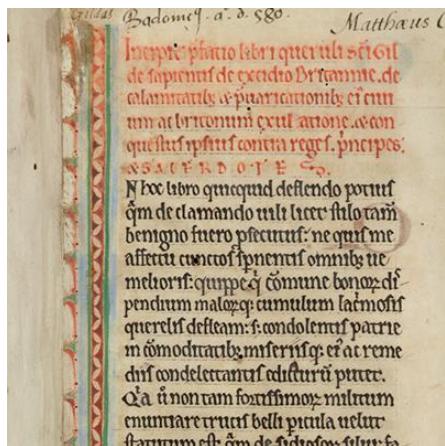 Gildas Badonicus. a. d. 580. Matthæus
Incipit p̄fatio libri queruli sc̄i Gil
de sapientis de excidio Britannie. de
calamitatibꝫ ⁊ p̄uaricationibꝫ ei' ciui
um ac britonum exul atione. ⁊ con
questus ipsius contra reges. p̄ncipes.
⁊ SACERDOTES.
N hoc libro quicquid deflendo potius
q̄m declamando uili licet stilo tam̄
benigno fuero p̄secutus: ne quis me
affectu cunctos sp̄nentis omnibꝫ ue
melioris: quippe q̄ cōmune bonoꝝ dis
pendium maloꝝq; cumulum lac̄mosis
querelis defleam: s; condolentis patrie
in cōmoditatibꝫ miseriisq; ei' ac reme
diis condelectantis edicturū putet.
Q̄a ū non tam fortissimoꝝ militum
enuntiare trucis belli p̄icula uelut
statutum est: q̄m desidiosoꝝ silui: fa